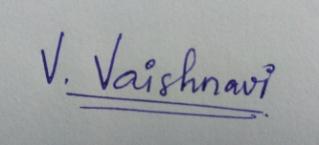 V. Vaishnavi